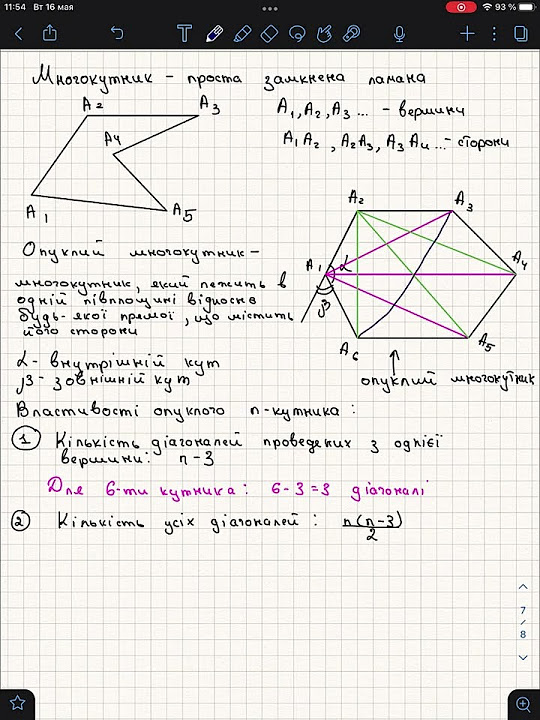 11:54 Вт 16 мая
93 %
Многокутник – проста замкнена ламана
A1, A2, A3 ... – вершини
A1A2, A2A3, A3A4 ... – сторони
A2
A3
A4
A1
A5
A2
A3
A1
α
A4
β
A6
A5
Опуклий многокутник –
многокутник, який лежить в
одній півплощині відносно
будь-якої прямої, що містить
його сторони
α – внутрішній кут
β – зовнішній кут
опуклий многокутник
Властивості опуклого n-кутника:
1 Кількість діагоналей проведених з однієї
вершини: n-3
Для 6-ти кутника: 6-3=3 діагоналі
2 Кількість усіх діагоналей: n(n-3)
2
7
/
8